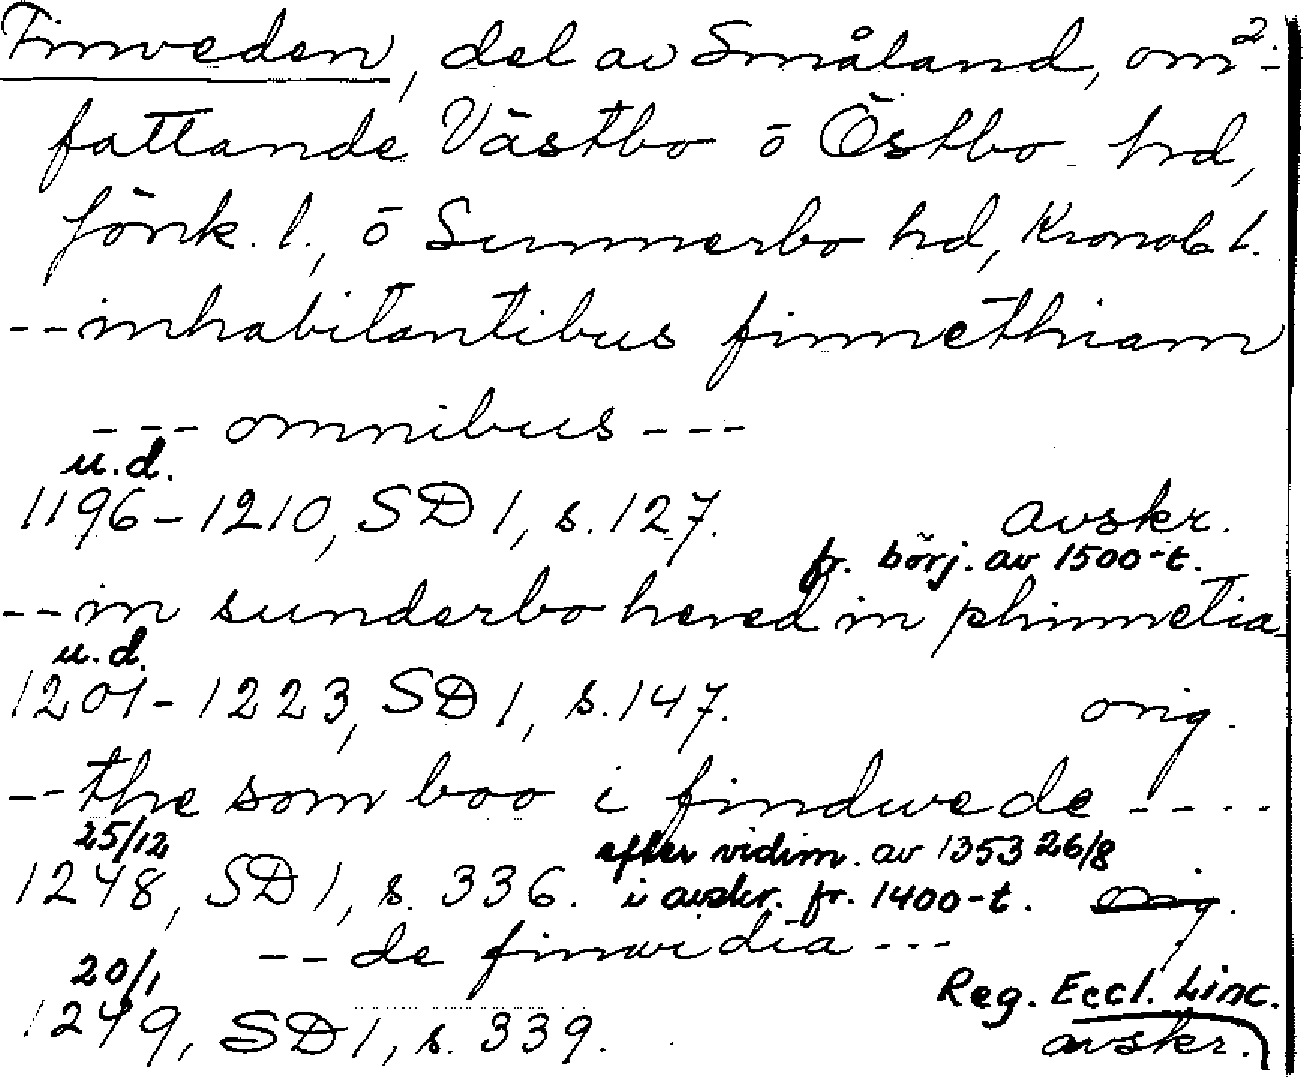 Finveden, del av Småland, om²-
fattande Västbo o Östbo hd,
Jönk. l., o Sunnerbo hd, Kronob l.
--inhabitantibus finnethiam
--- omnibus ---
u.d.
1196-1210, SD 1, s. 127. avskr.
fr. börj. av 1500-t.
--in sunderbo hered in phinnetia
u.d.
1201-1223, SD 1, s. 147. orig.
--the som boo i findwede ----
25/12 efter vidim. av 1353 26/8
1248, SD 1, s. 336. i avskr. fr. 1400-t. orig.
--de finwidia ---
20/1 Reg. Eccl. Linc.
1249, SD 1, s. 339. avskr.